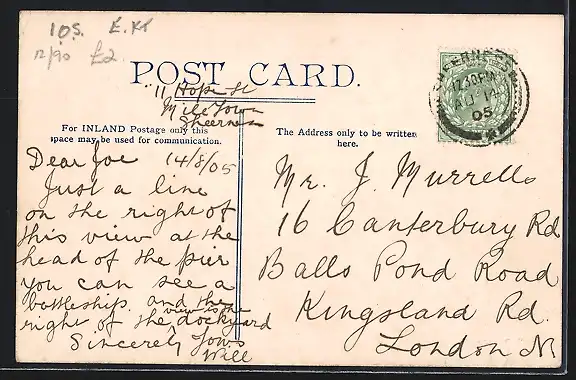 10S. E. Kt
12/90 £2
POST CARD.
11 Hope St
Mile Town
Sheerness
For INLAND Postage only this
space may be used for communication.
The Address only to be written
here.
Dear Joe 14/8/05
Just a line
on the right of
this view at the
head of the pier
you can see a
battleship. and the
right of the view is the dockyard
Sincerely Yours
Will
SHEERNESS
12.30PM
AU 14
05
Mr. J. Murrells
16 Canterbury Rd
Balls Pond Road
Kingsland Rd.
London N